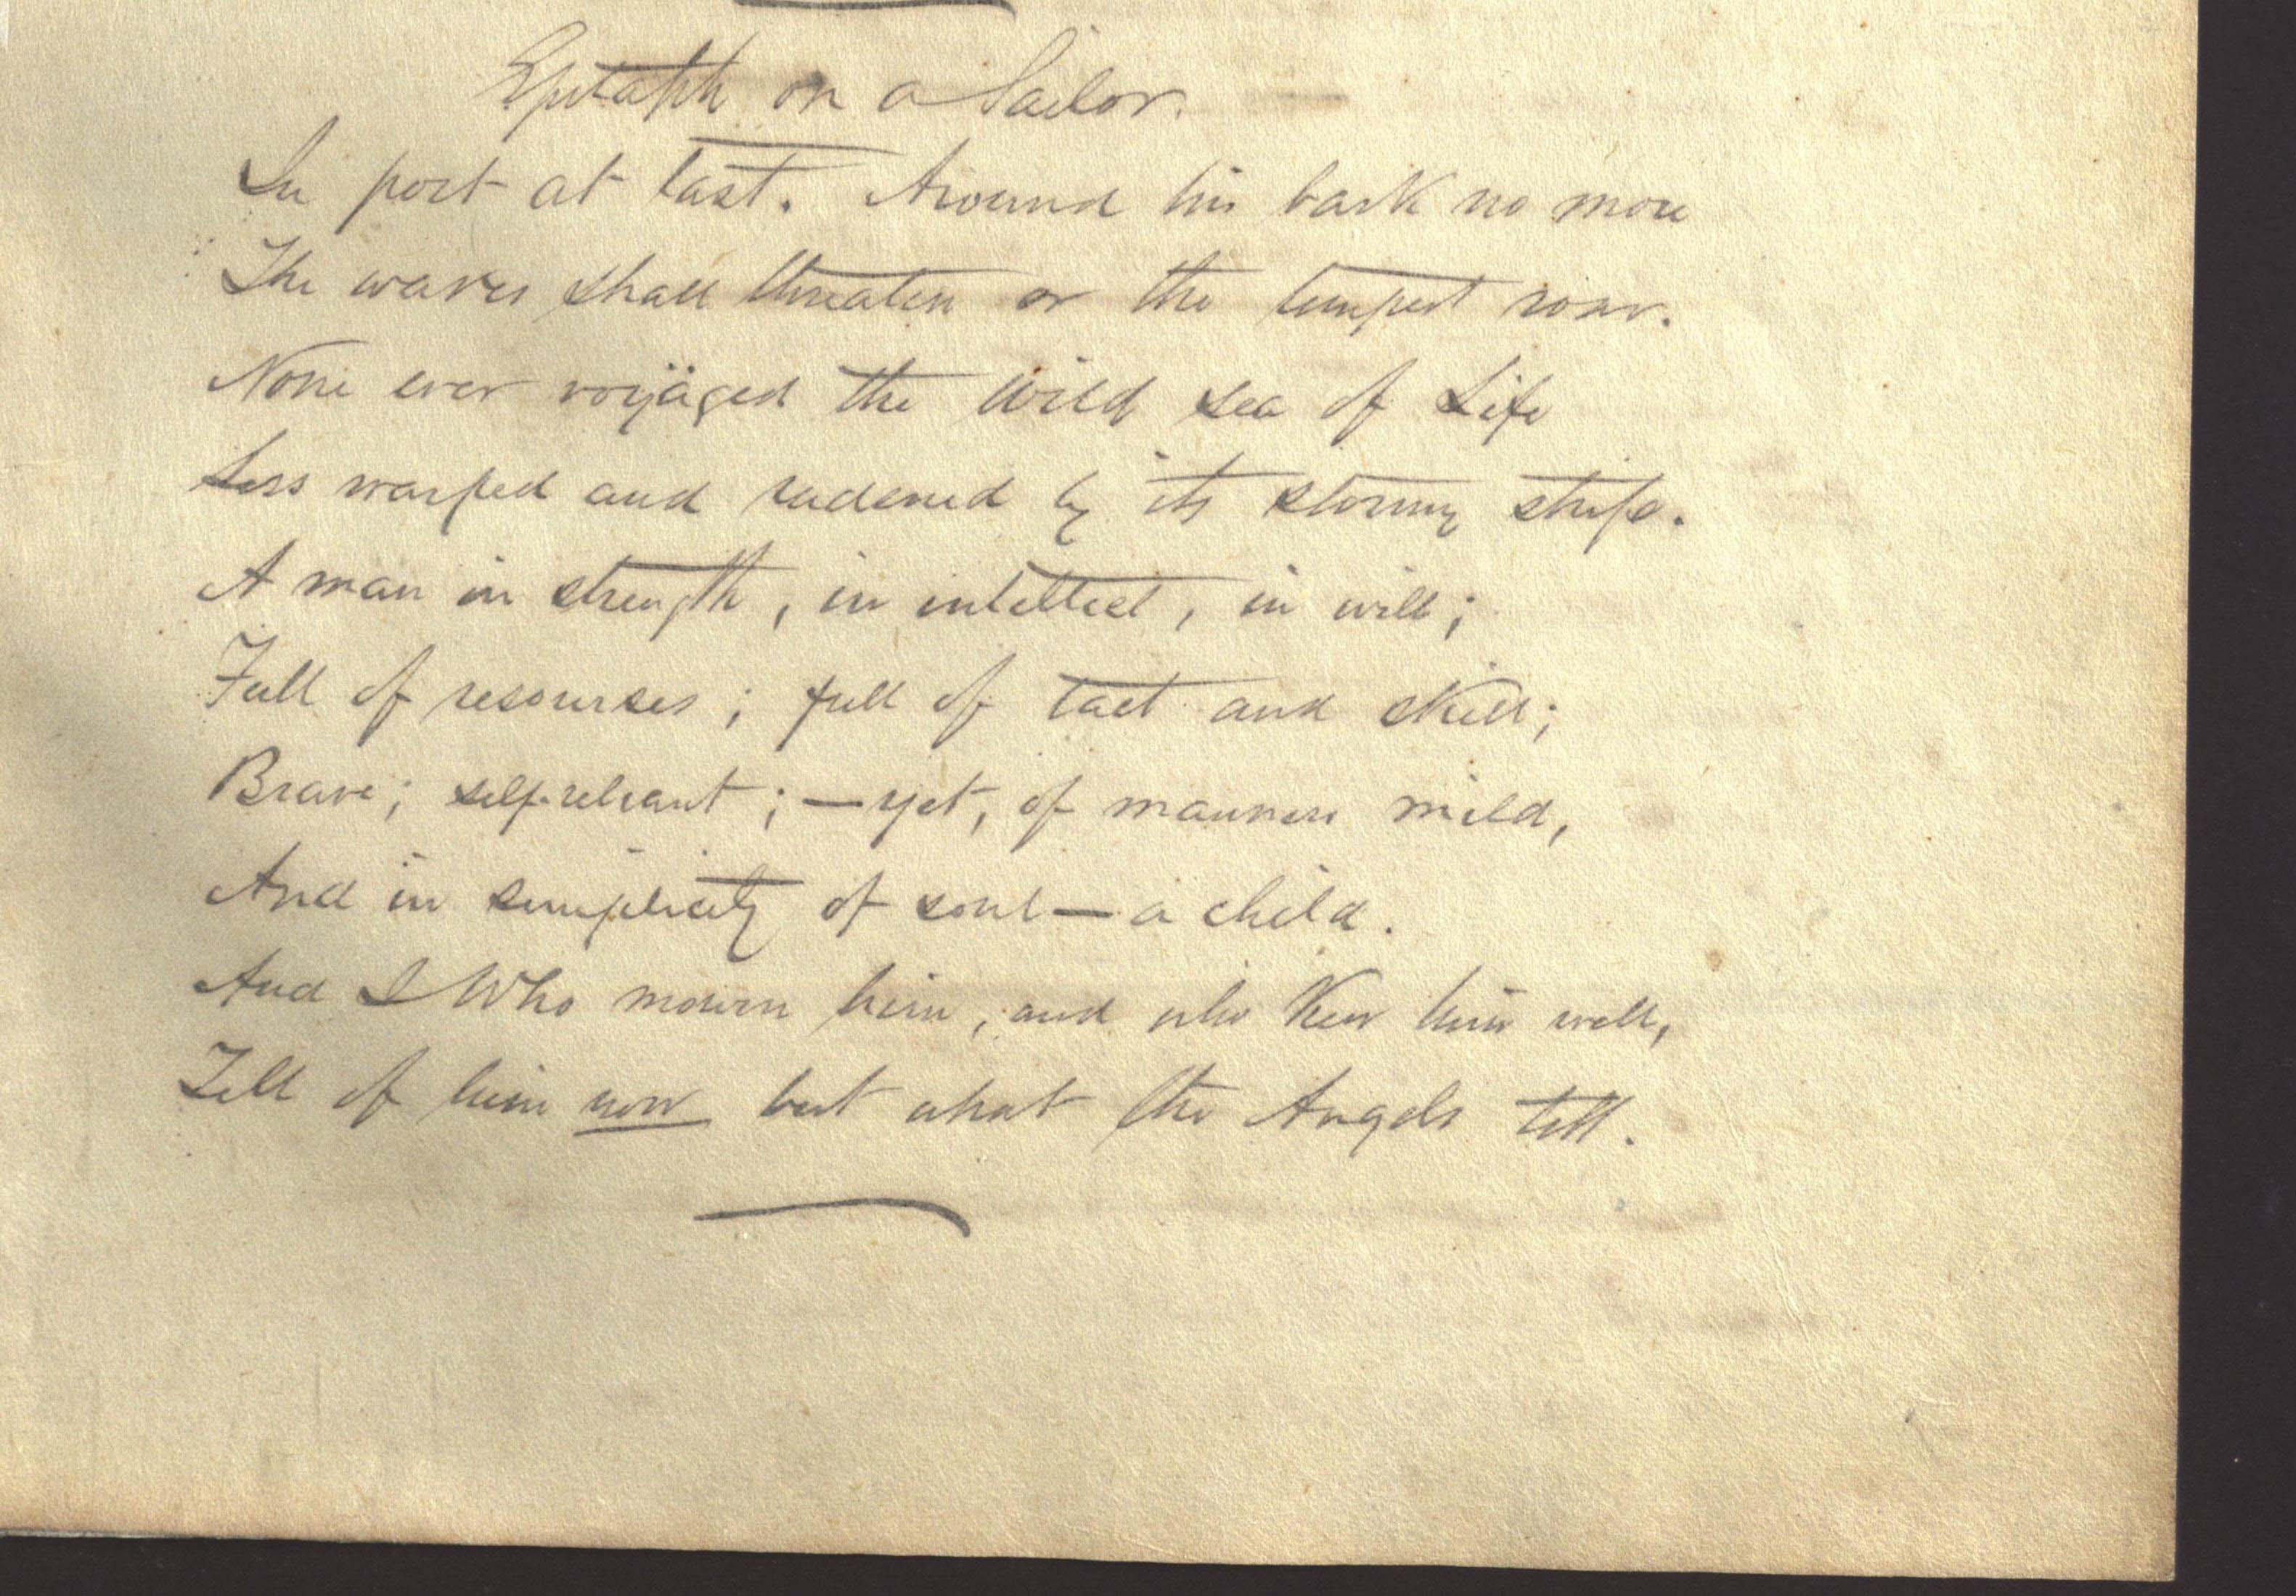 Epitaph on a Sailor.
In port at last. Around his bark no more
The waves shall threaten or the tempest roar.
None ever voyäged the wild sea of Life
Less warped and rudened by its stormy strife.
A man in strength, in intellect, in will;
Full of resourses; full of tact and skill;
Brave; self-reliant; — yet, of manners mild,
And in simplicity of soul — a child.
And I who mourn him, and who Kew him well,
Tell of him now but what the Angels tell.